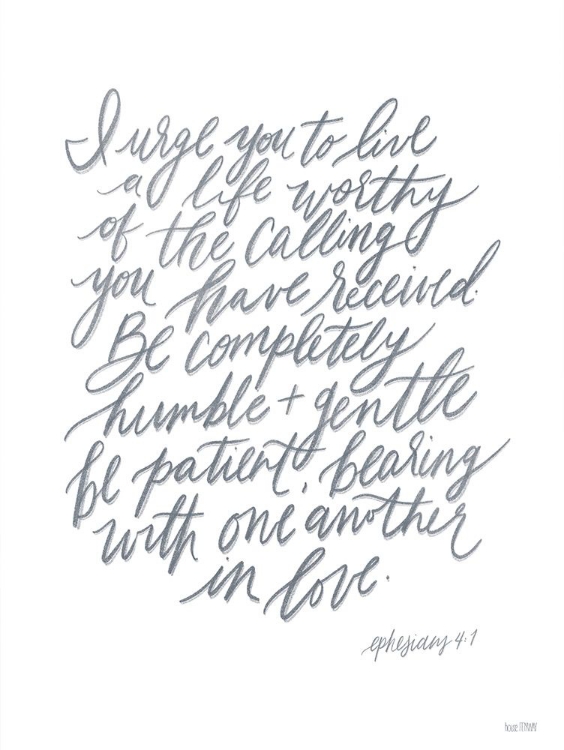 I urge you to live
a life worthy
of the Calling
you have received.
Be completely
humble + gentle
be patient, bearing
with one another
in love.
ephesians 4:1
house FENWAY